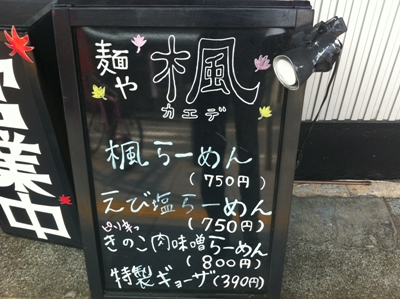 麺や 楓
カエデ
楓らーめん
(750円)
えび塩らーめん
(750円)
ぴり辛っ
きのこ肉味噌らーめん
(800円)
特製ギョーザ(390円)
営業中